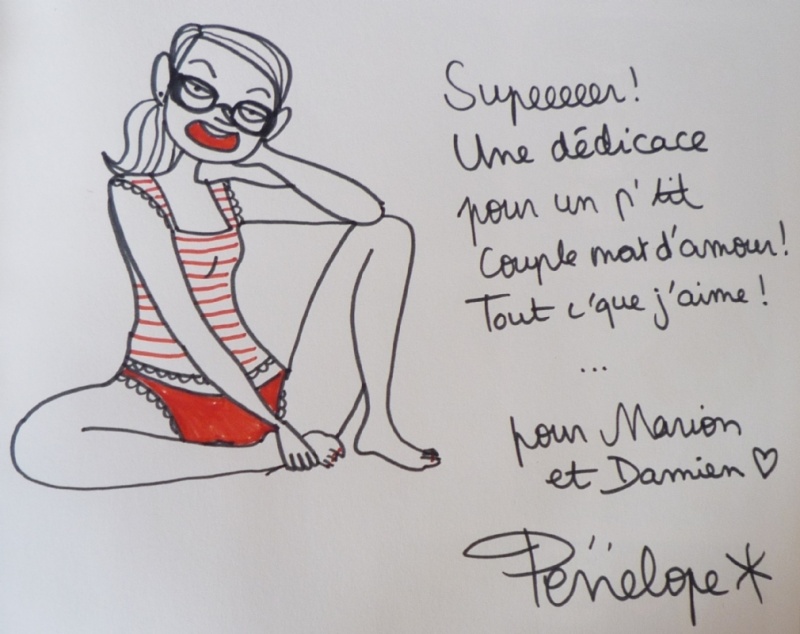 Supeeeeer!
Une dédicace
pour un p'tit
Couple mort d'amour!
Tout c'que j'aime!
...
pour Marion
et Damien ♡
Pénélope*